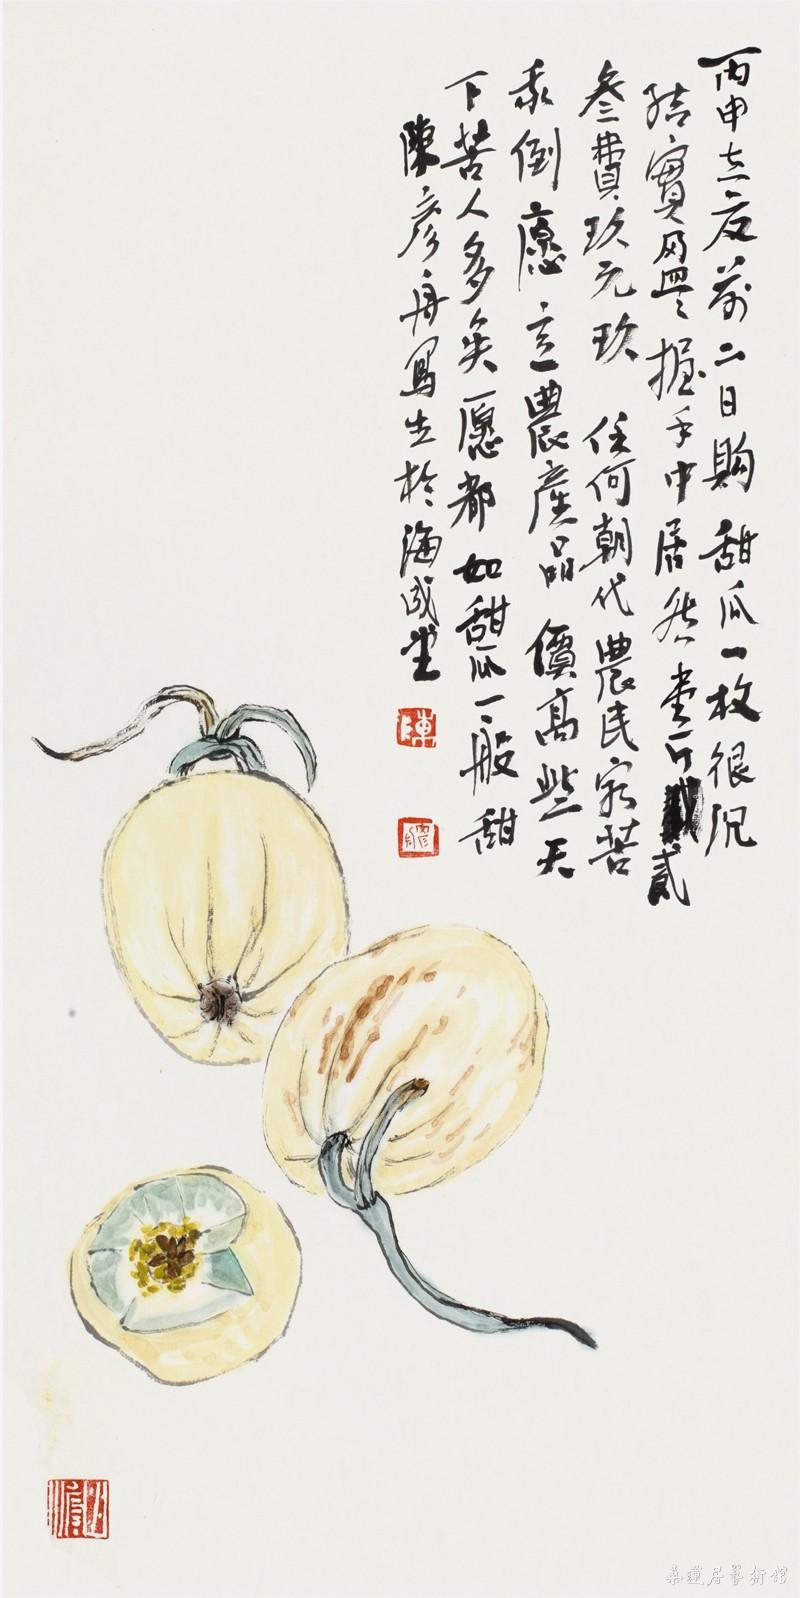 丙申立夏前二日購甜瓜一枚很沉
结實握手中居然壹斤貳
叁費玖元玖 任何朝代農民最苦
我倒愿意農產品價高些天
下苦人多矣愿都如甜瓜一般甜
陳彦舟寫生於海成堂
陳
桑蓮居藝術館